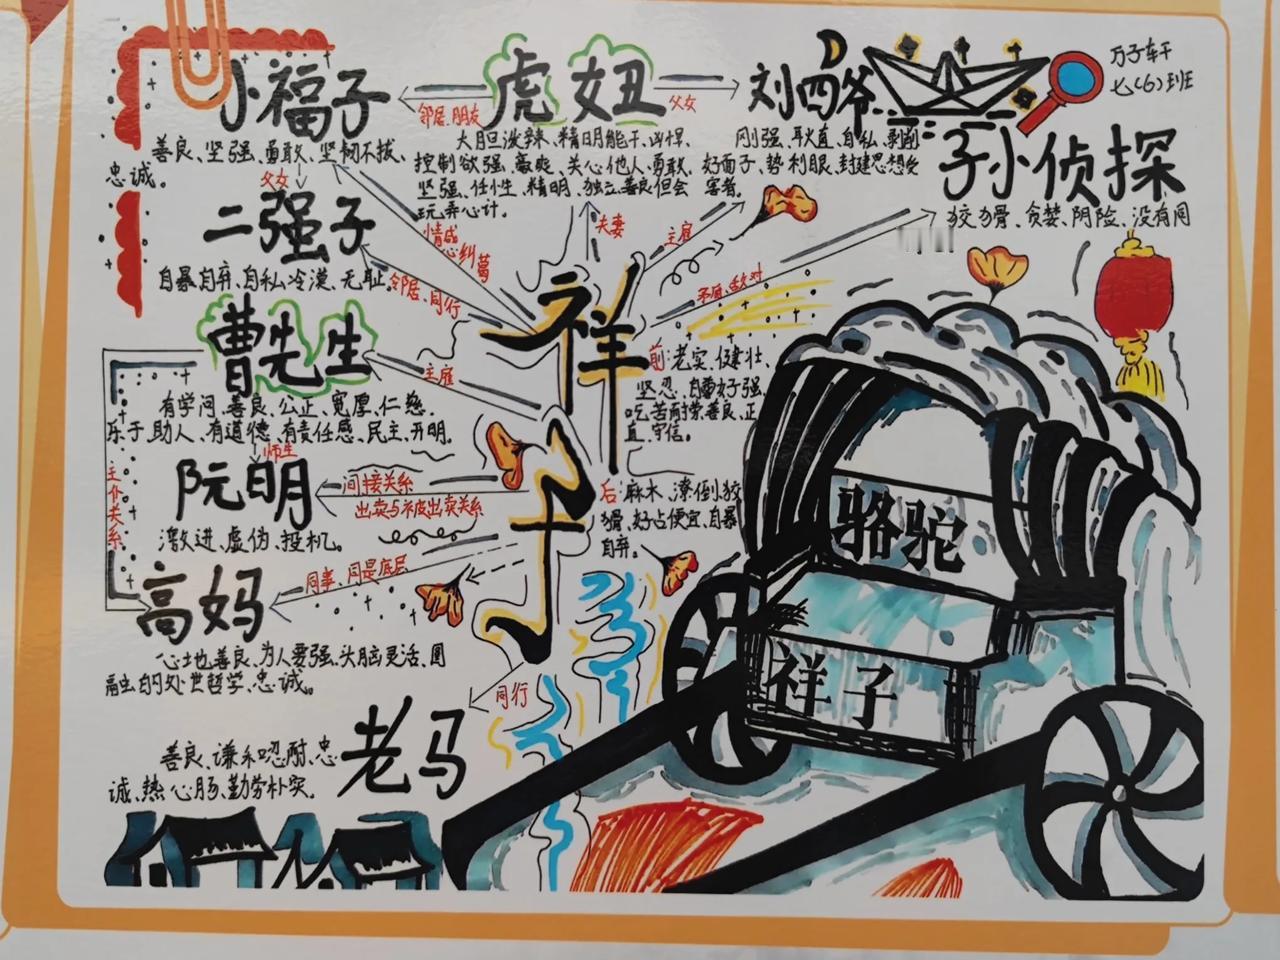 小福子
虎妞
刘四爷
万子轩
七(6)班
邻居.朋友
父女
善良、坚强、勇敢、坚韧不拔、
忠诚。
大胆泼辣、精明能干、凶悍、
控制欲强、豪爽、关心他人、勇敢、
坚强、任性、精明、独立、善良但会
玩弄心计。
刚强、耿直、自私、剥削
好面子、势利眼、封建思想受
害者。
孙小侦探
狡猾、贪婪、阴险、没有同
父女
二强子
自暴自弃、自私、冷漠、无耻。
情感
纠葛
邻居、同行
夫妻
主雇
矛盾、敌对
祥子
前:老实、健壮、
坚忍、自尊好强、
吃苦耐劳、善良、正
直、守信。
后:麻木、潦倒、狡
猾、好占便宜、自暴
自弃。
曹先生
主雇
有学问、善良、公正、宽厚、仁慈、
乐于助人、有道德、有责任感、民主、开明。
师生
阮明
间接关系
出卖与被出卖关系
激进、虚伪、投机。
主仆关系
高妈
同事、同是底层
心地善良、为人要强、头脑灵活、圆
融的处世哲学、忠诚。
同行
老马
善良、谦和忍耐、忠
诚、热心肠、勤劳朴实。
骆驼
祥子